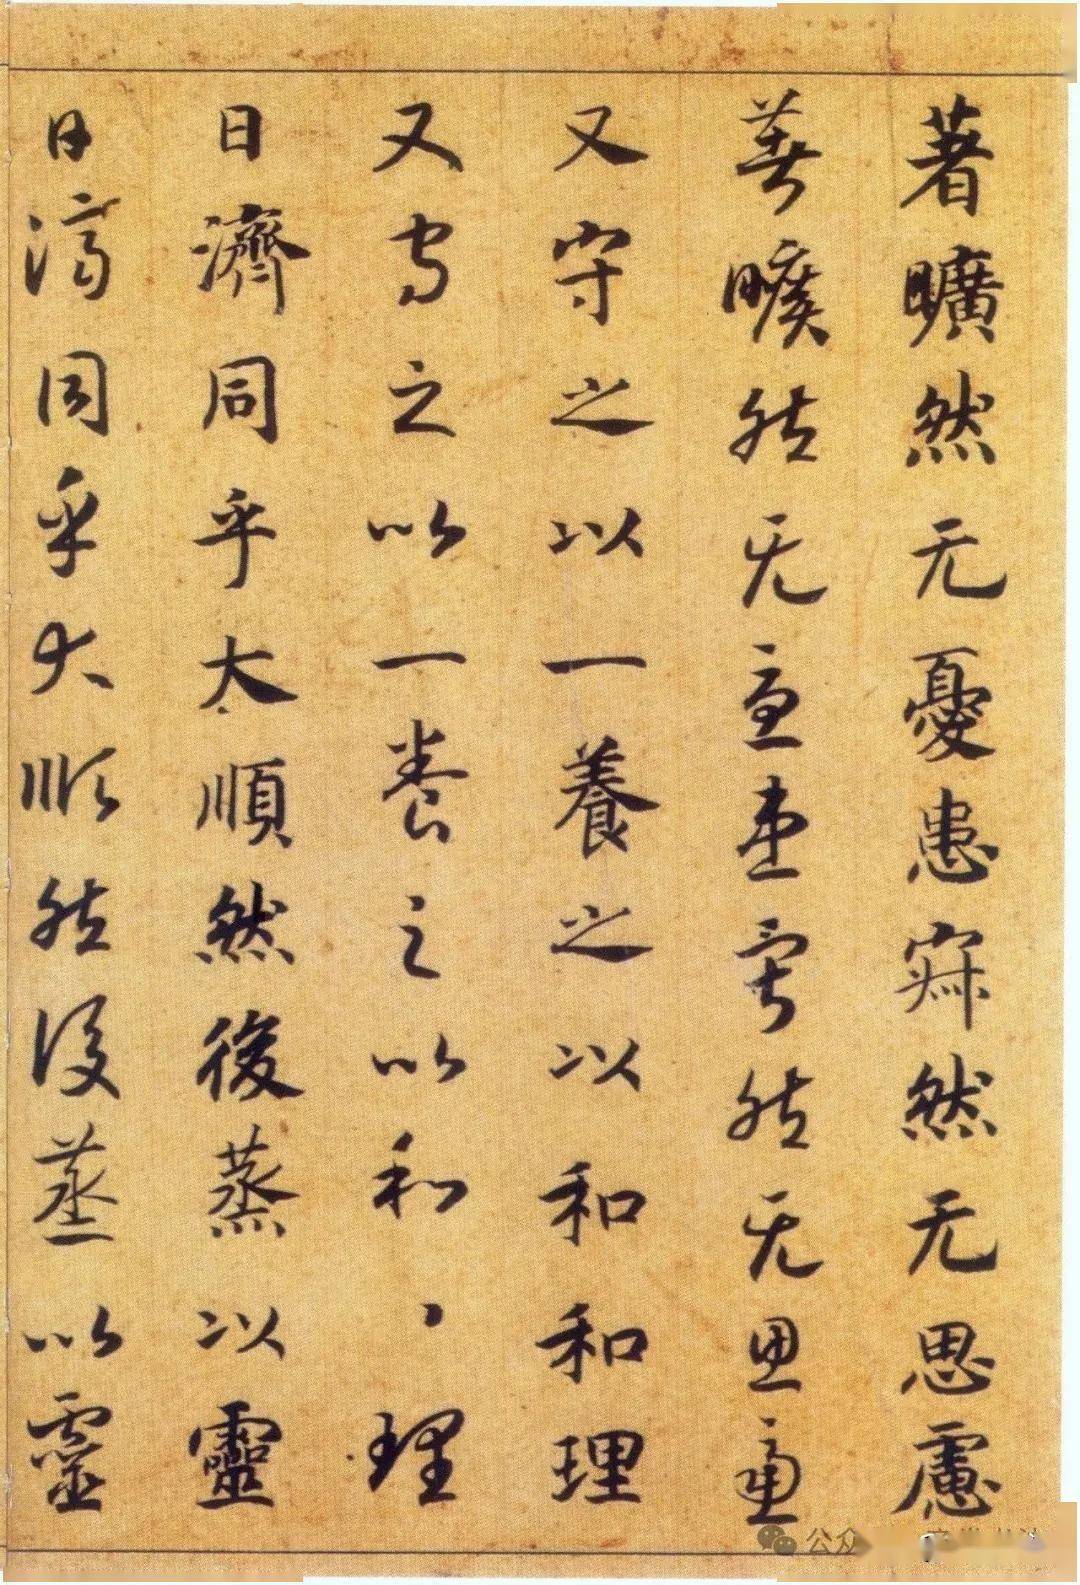 著曠然无憂患寂然无思慮
著曠然无憂患寂然无思慮
又守之以一養之以和和理
又守之以一養之以和、理
日濟同乎大順然後蒸以靈
日濟同乎大順然後蒸以靈
公众